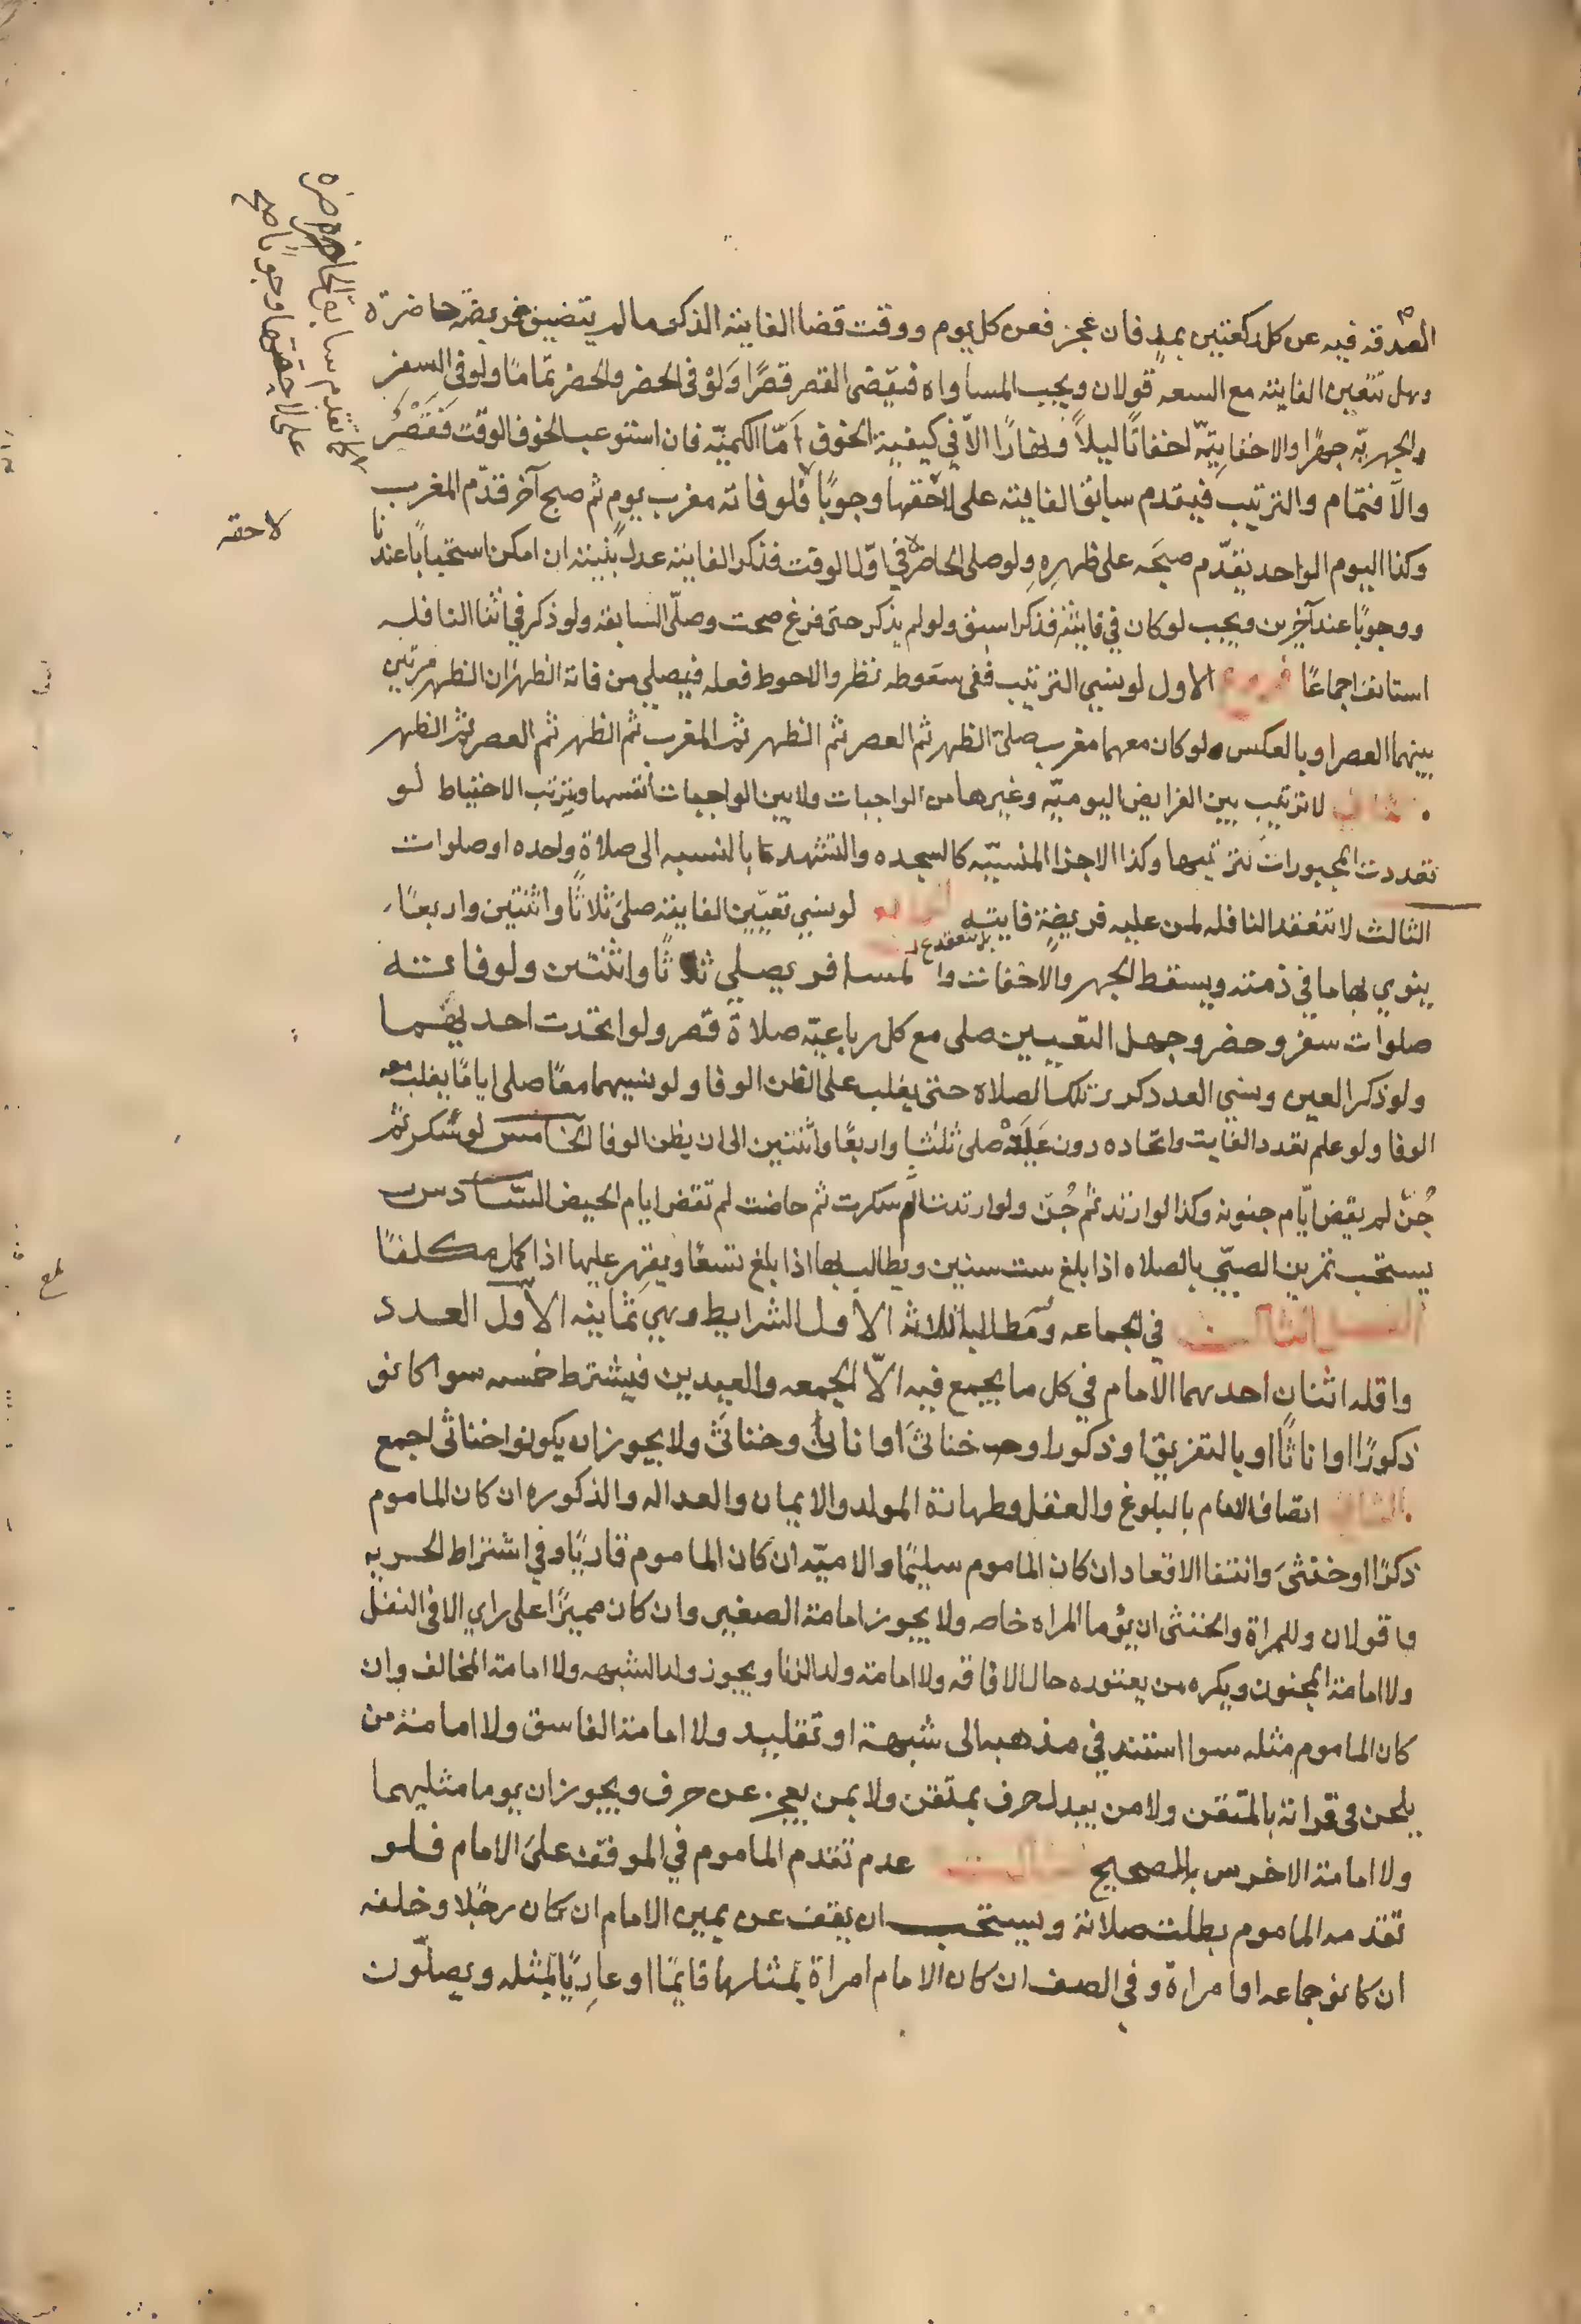 الصدقه فيه عن كل ركعتين بمد فان عجز فعن كل يوم ووقت قضا الفايته الذكر ما لم يتضيق فريضة حاضرة
وهل تتعين الفايته مع السعه قولان ويجب المساواه فيقضى القصر قصرًا وَلَوْ في الحضر والحضر تمامًا ولو في السفر
والجهريّه جهرًا والاخفايتيّه اخفاتًا ليلاً ونهارًا الاّ في كيفية الخوف اَمّا الكميّه فان استوعب الخوف الوقت فَقَصْرٌ
والاّ فتمام والترتيب فيقدم سابق الفايته على لاحقها وجوبًا فلو فاته مغرب يوم ثم صبح آخر قدّم المغرب
وكذا اليوم الواحد يقدّم صبحَه على ظهرِهِ ولو صلى الحاضرة في اوّل الوقت فذكر الفايته عدل بنيته ان امكن استحبابًا عندنا
ووجوبًا عند آخرين ويجب لو كان في فايتة فذكر اسبق ولو لم يذكر حتى فرغ صحت وصلّى السابقه ولو ذكر في اثنا النافله
استانف اجماعًا فروع الاول لو نسي الترتيب ففى سقوطه نظر والاحوط فعله فيصلي من فاته الظهران الظهر مرتين
بينهما العصر او بالعكس ولو كان معهما مغرب صلى الظهر ثم العصر ثم الظهر ثم المغرب ثم الظهر ثم العصر ثم الظهر
الثاني لا ترتيب بين الفرايض اليوميّه وغيرها من الواجبات ولا بين الواجبات أنفسها ويترتب الاحتياط لو
تعددت المجبورات بترتيبها وكذا الاجزا المنسيّه كالسجده والتشهد بالنسبه الى صلاةٍ واحده او صلوات
الثالث لا تنعقد النافله لمن عليه فريضةٍ فايته الرابع لو نسي تعيين الفايته صلى ثلاثًا واثنتين واربعًا
ينوي بها ما في ذمته ويسقط الجهر والاخفات والمسافر يصلي ثلاثًا واثنتين ولو فاتته
صلوات سفر وحضر وجهل التعيين صلى مع كل رباعيّه صلاة قصر ولو اتحدت احديهما
ولو ذكر العين ونسي العدد كرر تلك الصلاه حتى يغلب على الظن الوفا ولو نسيهما معًا صلى ايامًا يغلب معه
الوفا ولو علم تعدد الفايت واتحاده دون صلى ثلثا واربعًا واثنتين الى ان يظن الوفا الخامس لو سكر ثم
جُنّ لم يقض ايّام جنونه وكذا لو ارتد ثم جُنّ ولو ارتدت او سكرت ثم حاضت لم تقض ايام الحيض السّادس
يستحب تمرين الصبيّ بالصلاه اذا بلغ ست سنين ويطالب بها اذا بلغ تسعًا ويقهر عليها اذا كمل مكلفًا
الفصل الثالث في الجماعه ومطالبه ثلاثه الأول الشرايط وهي ثمانيه الأول العدد
واقله اثنان احدهما الامام في كل ما يجمع فيه الاّ الجمعه والعيدين فيشترط خمسه سوا كانو
ذكورًا او اناثًا او بالتفريق او ذكورا وخناثَى او اناث وخناثَى ولا يجوز ان يكونوا خناثى اجمع
الثاني اتصاف الامام بالبلوغ والعقل وطهارة المولد والايمان والعداله والذكوره ان كان الماموم
ذكرًا او خنثىَ وانتفا الاقعاد ان كان الماموم سليمًا والاميّه ان كان الماموم قاريًا وفي اشتراط الحريه
قولان وللمراة والخنثى ان يؤما المراه خاصه ولا يجوز امامة الصغير وان كان مميزًا على راي الا في النفل
ولا امامة المجنون ويكره من يعتوره حال الافاقه ولا امامة ولد الزنا ويجوز ولد الشبهه ولا امامة المخالف وان
كان الماموم مثله سوا استند في مذهبه الى شبهة او تقليد ولا امامة الفاسق ولا امامة من
يلحن في قراته بالمتقن ولا من يبدل حرف بمتقن ولا بمن يعجز عن حرف ويجوز ان يوما مثليهما
ولا امامة الاخرس بالصحيح الثالث عدم تقدم الماموم في الموقف على الامام فلو
تقدمه الماموم بطلت صلاته ويستحب ان يقف عن يمين الامام ان كان رجلا وخلفه
ان كانو جماعه او امراة وفي الصف ان كان الامام امراة بمثلها قايمًا او عاريًا بمثله ويصلّون
كما تقدم سابق الحاضره
على لاحقتها وجوبًا صح
لاحقه